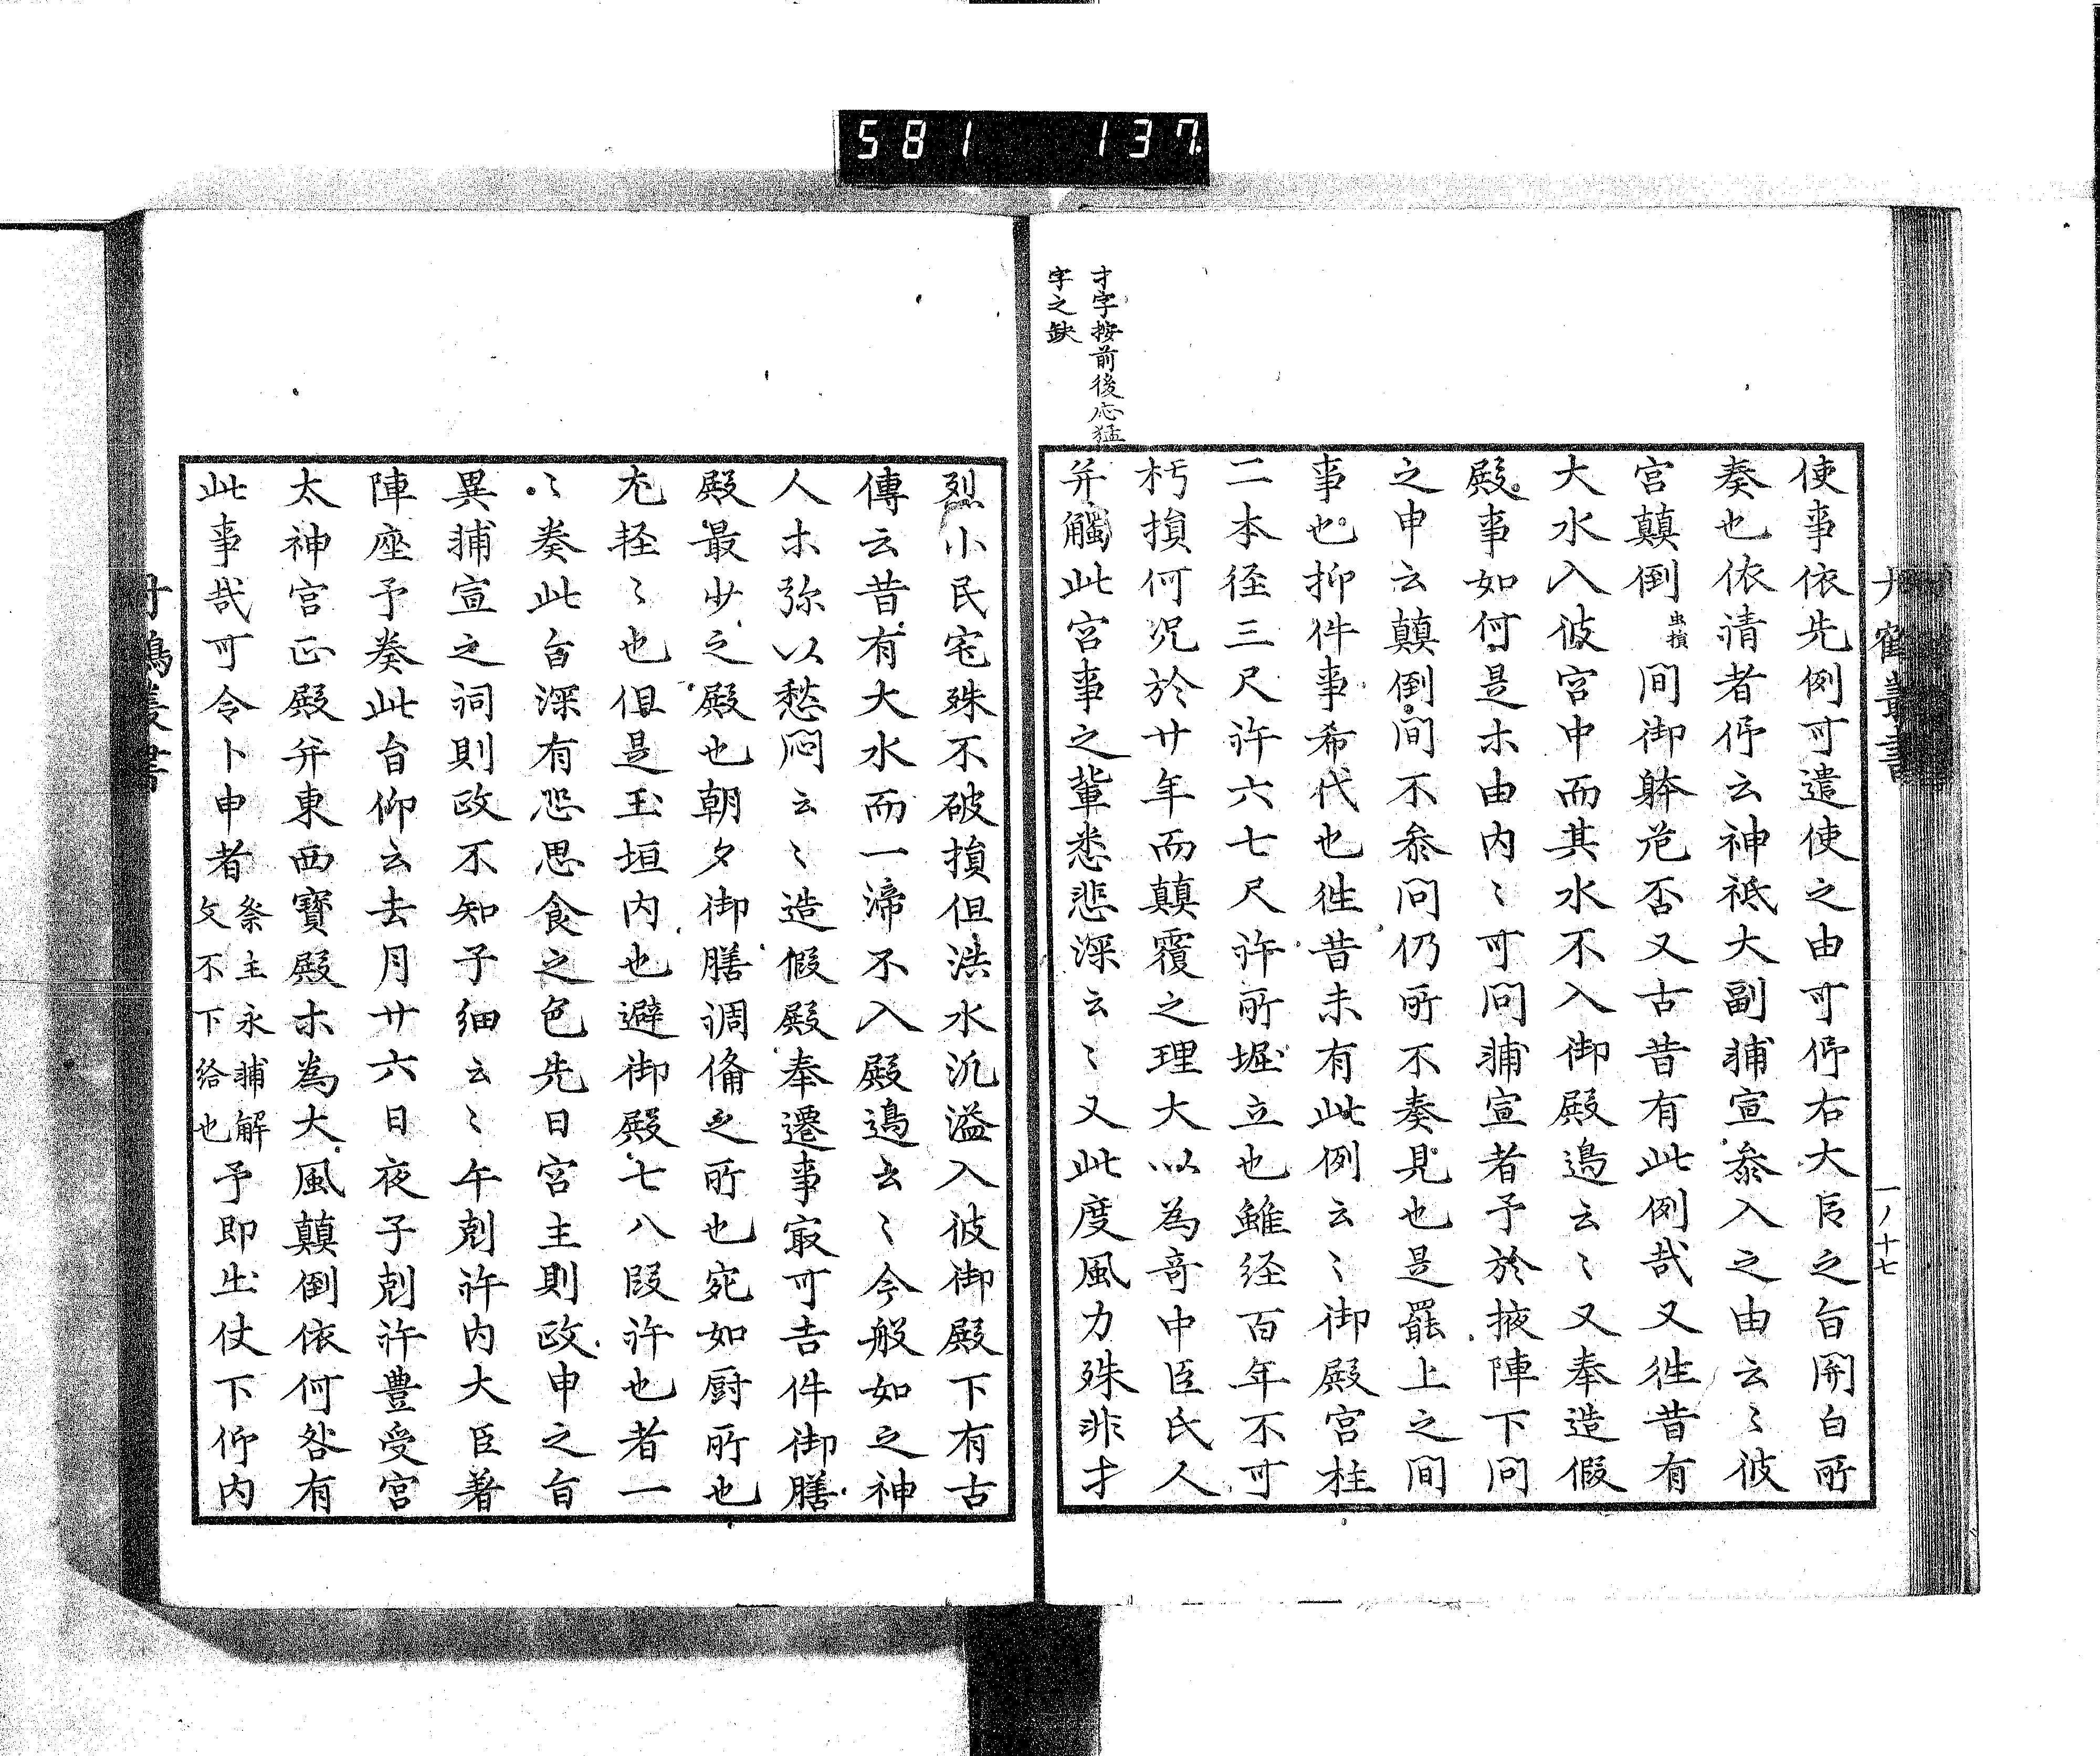 581 137
丹鶴叢書
一ノ十七
才字按前後応猛
字之缺
使事依先例可遣使之由可仰右大臣之旨関白所
奏也依清者仰云神祇大副輔宣参入之由云〻彼
宮顛倒虫損間御躰危否又古昔有此例哉又往昔有
大水入彼宮中而其水不入御殿邉云〻又奉造假
殿事如何是ホ由内〻可問輔宣者予於掖陣下問
之申云顛倒間不参問仍所不奏見也是罷上之間
事也抑件事希代也往昔未有此例云〻御殿宮柱
二本径三尺許六七尺許所堀立也雖経百年不可
朽損何况於廿年而顛覆之理大以為奇中臣氏人
并觸此宮事之輩悉悲深云〻又此度風力殊非才
烈小民宅殊不破損但洪水汎溢入彼御殿下有古
傳云昔有大水而一渧不入殿邉云〻今般如之神
人ホ弥以愁悶云〻造假殿奉遷事冣可吉件御膳
殿最少之殿也朝夕御膳調俻之所也宛如厨所也
尤軽〻也但是玉垣内也避御殿七八段許也者一
〻奏此旨深有恐思食之色先日宮主則政申之旨
異輔宣之詞則政不知子細云〻午剋許内大臣著
陣座予奏此旨仰云去月廿六日夜子剋許豊受宮
太神宮正殿并東西寶殿ホ為大風顛倒依何咎有
此事哉可令卜申者祭主永輔解
文不下給也予即出仗下仰内
丹鶴叢書